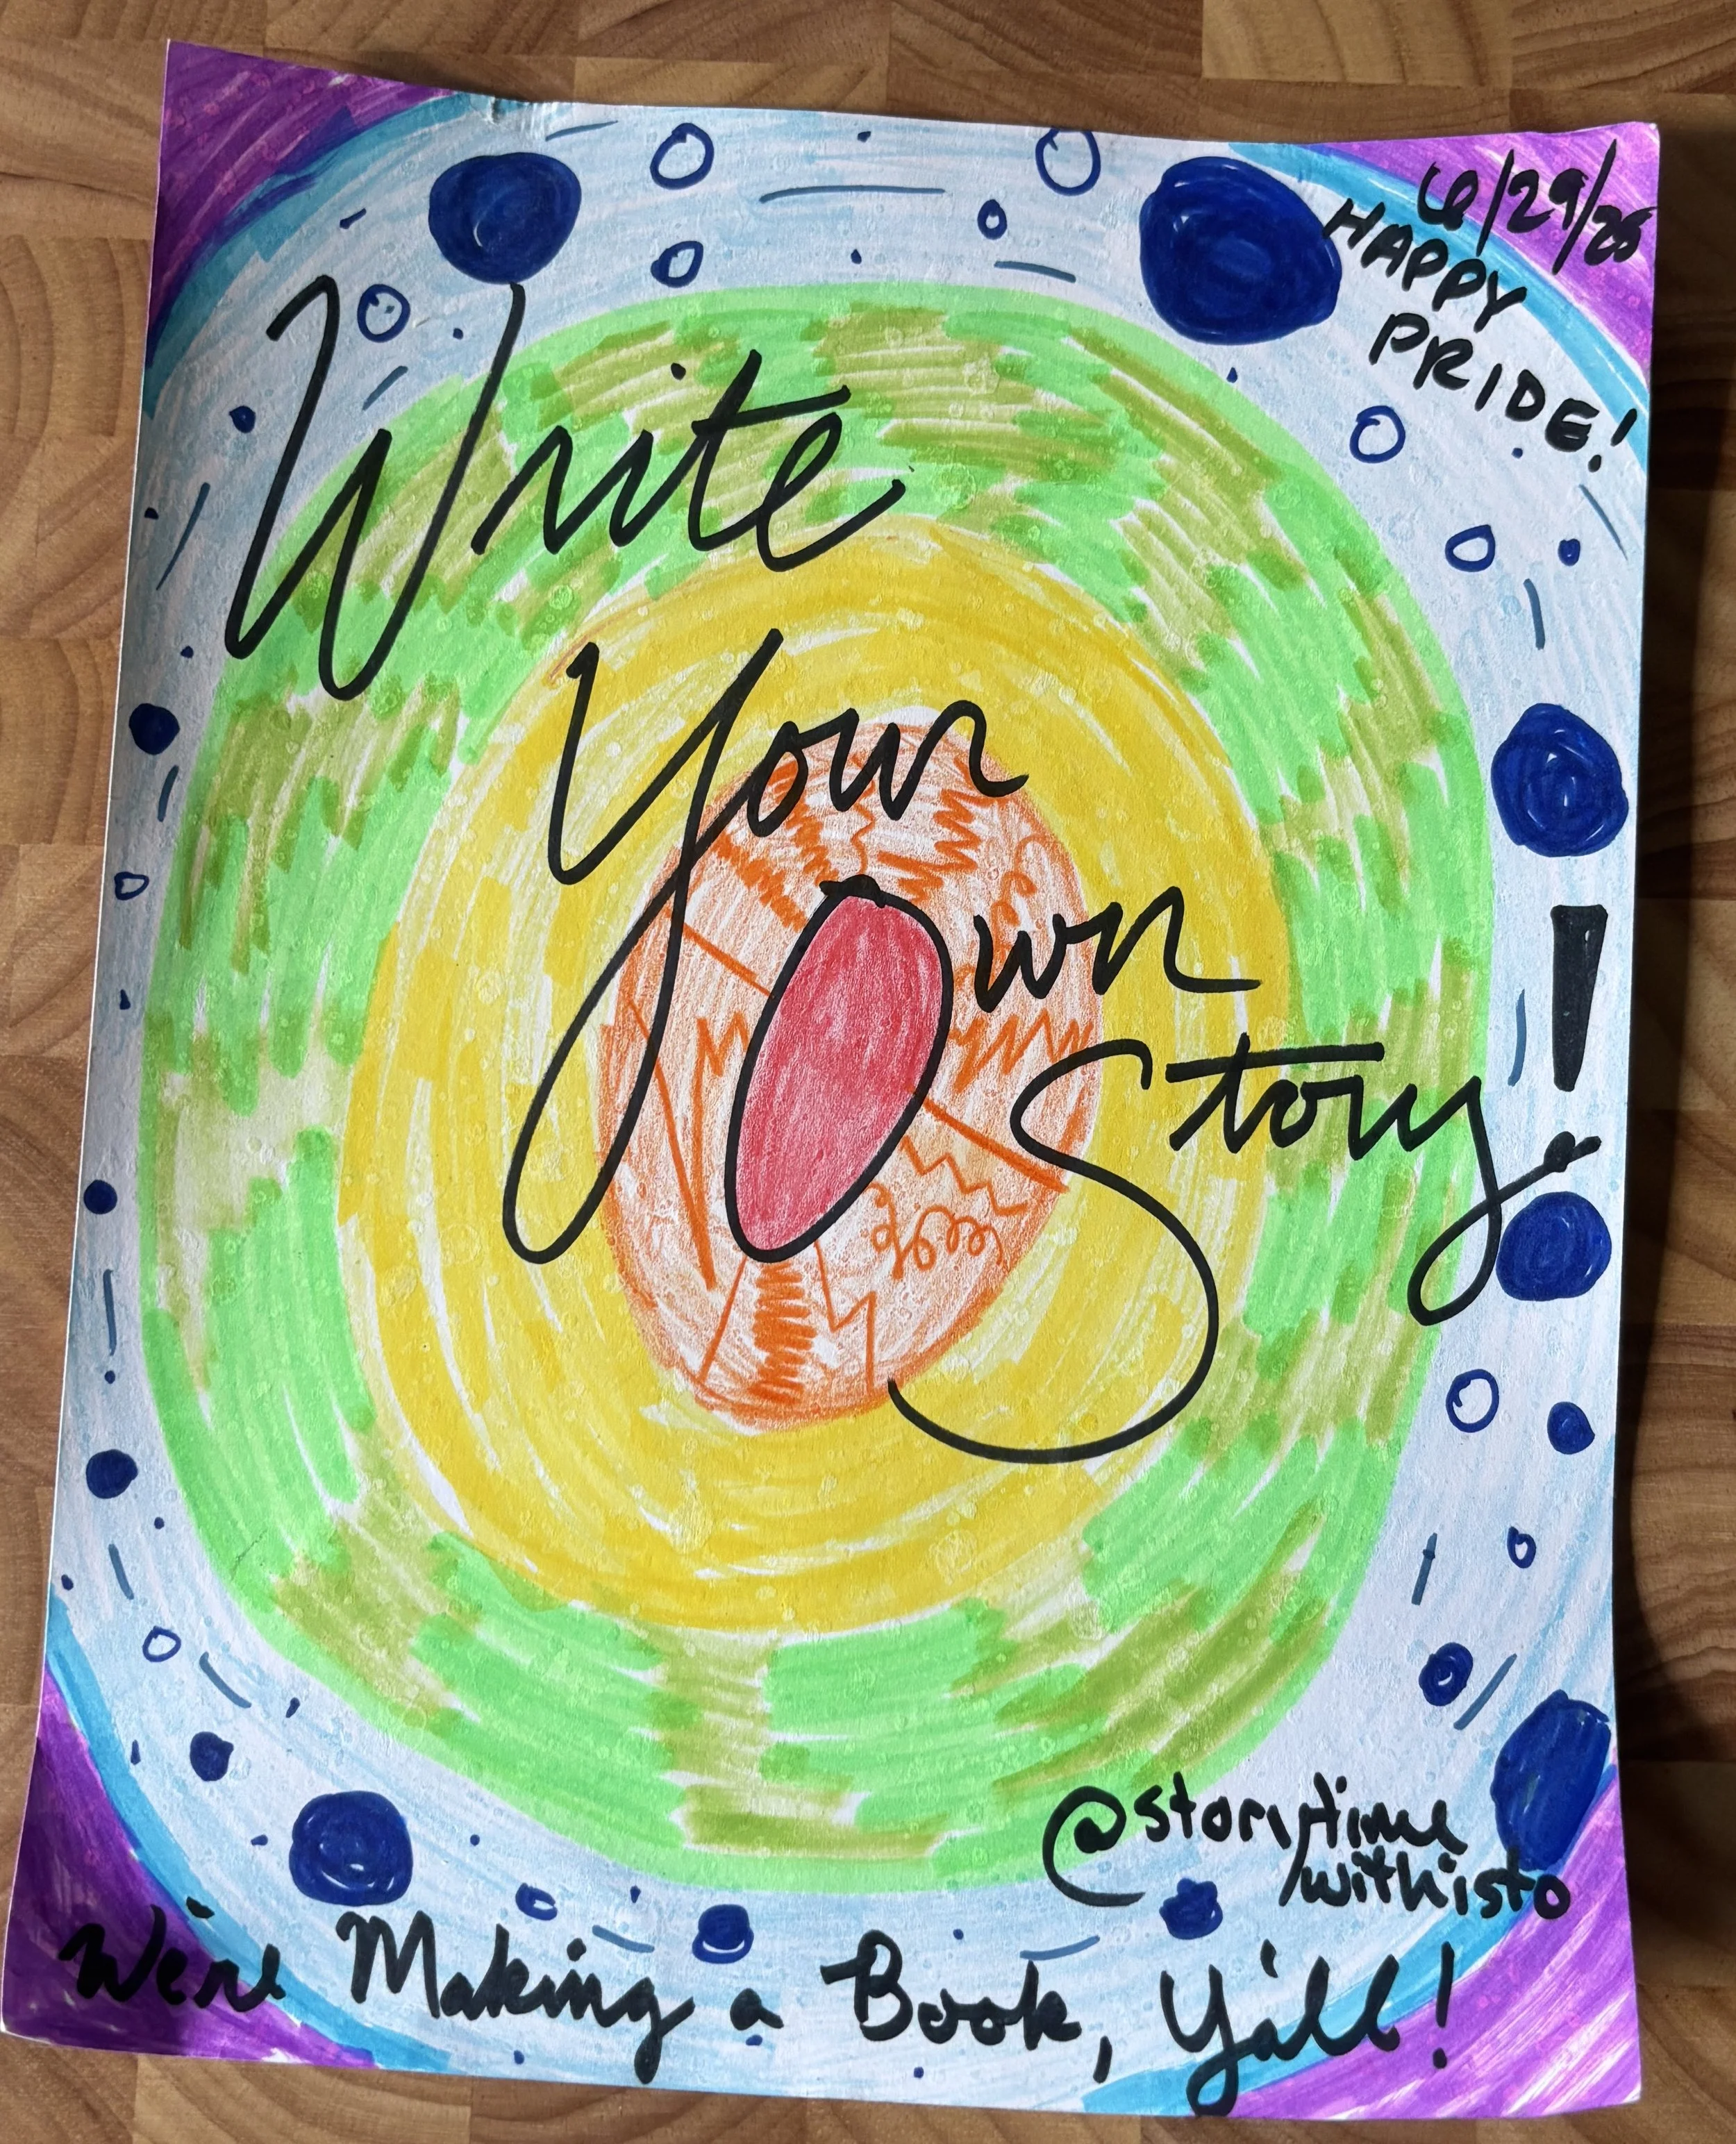 6/29/25
HAPPY
PRIDE!
Write
Your
Own
Story!
@storytime
withisto
We're Making a Book, Y'all!